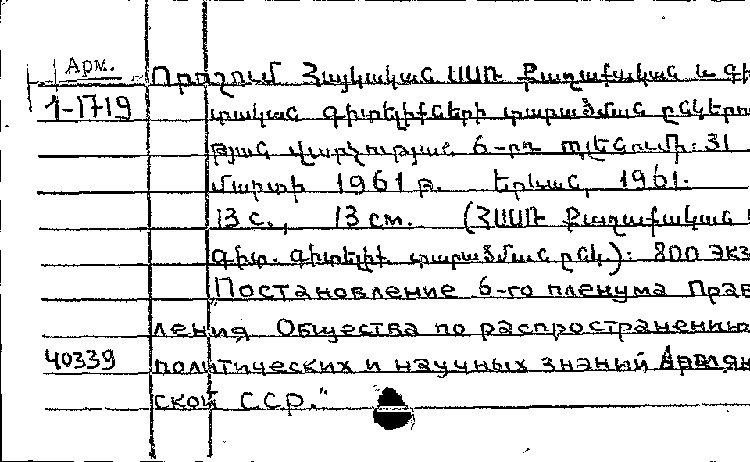 Арм.
1-1719
Որոշում Հայկական ՍՍՌ Քաղաքական և գի
տական գիտելիքների տարածման ընկերու
թյան վարչության 6-րդ պլենումի: 31
մարտի 1961 թ. Երևան, 1961.
13 с., 13 см. (ՀՍՍՌ Քաղաքական
գիտ. գիտելիք. տարածման ընկ.): 800 экз
"Постановление 6-го пленума Прав
ления Общества по распространению
40339
политических и научных знаний Армян
ской ССР."